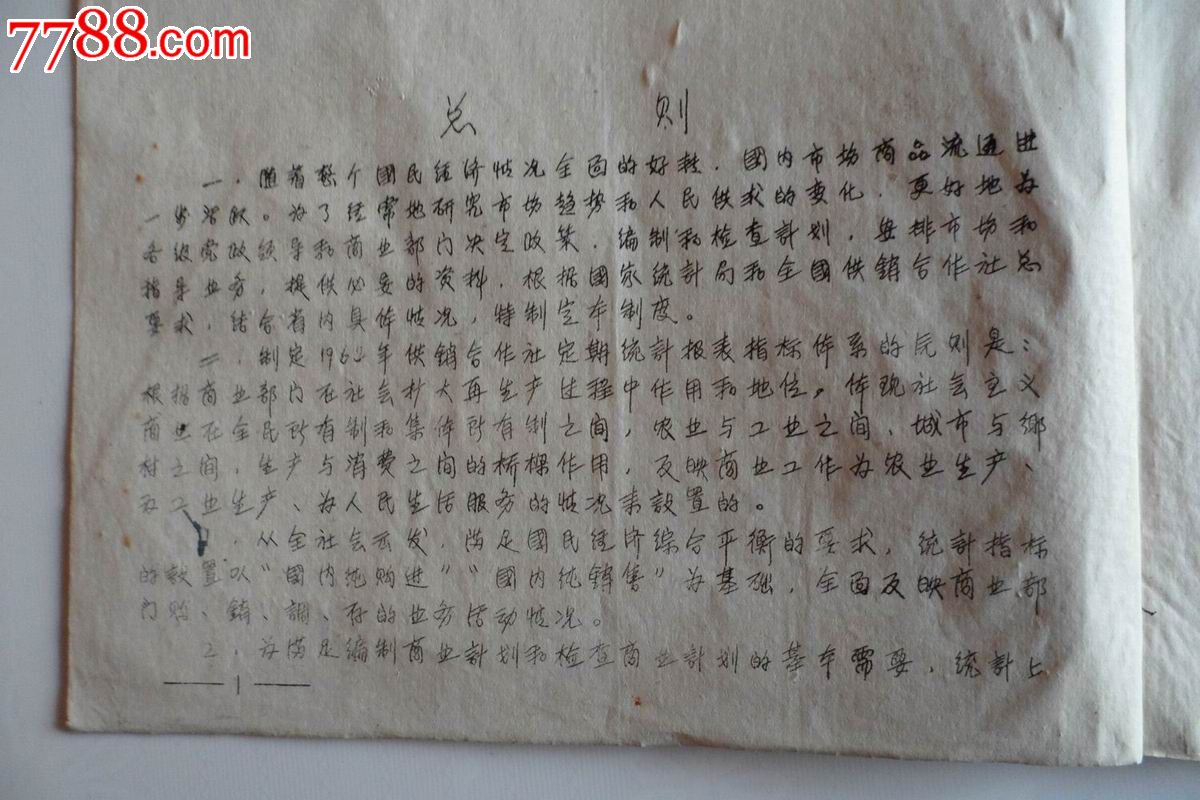 7788.com
总 则
一、随着整个國民经济情况全面的好转,國内市场商品流通进
一步活跃。为了经常地研究市场趋势和人民供求的变化,更好地为
各级党政领导和商业部门决定政策、编制和检查計划,安排市场和
指导业务,提供必要的资料,根据國家统計局和全國供销合作社总
要求,结合省内具体情况,特制定本制度。
二、制定196 年供销合作社定期统計报表指标体系的原则是:
根据商业部门在社会扩大再生产过程中作用和地位,体现社会主义
商业在全民所有制和集体所有制之间,农业与工业之间,城市与鄉
村之间,生产与消费之间的桥樑作用,反映商业工作为农业生产、
为工业生产、为人民生活服务的情况来設置的。
、从全社会出发,满足國民经济综合平衡的要求,统計指标
的設置以“國内纯购进”“國内纯销售”为基础,全面反映商业部
门购、銷、調、存的业务活动情况。
2、为满足编制商业計划和检查商业計划的基本需要,统計上
—1—